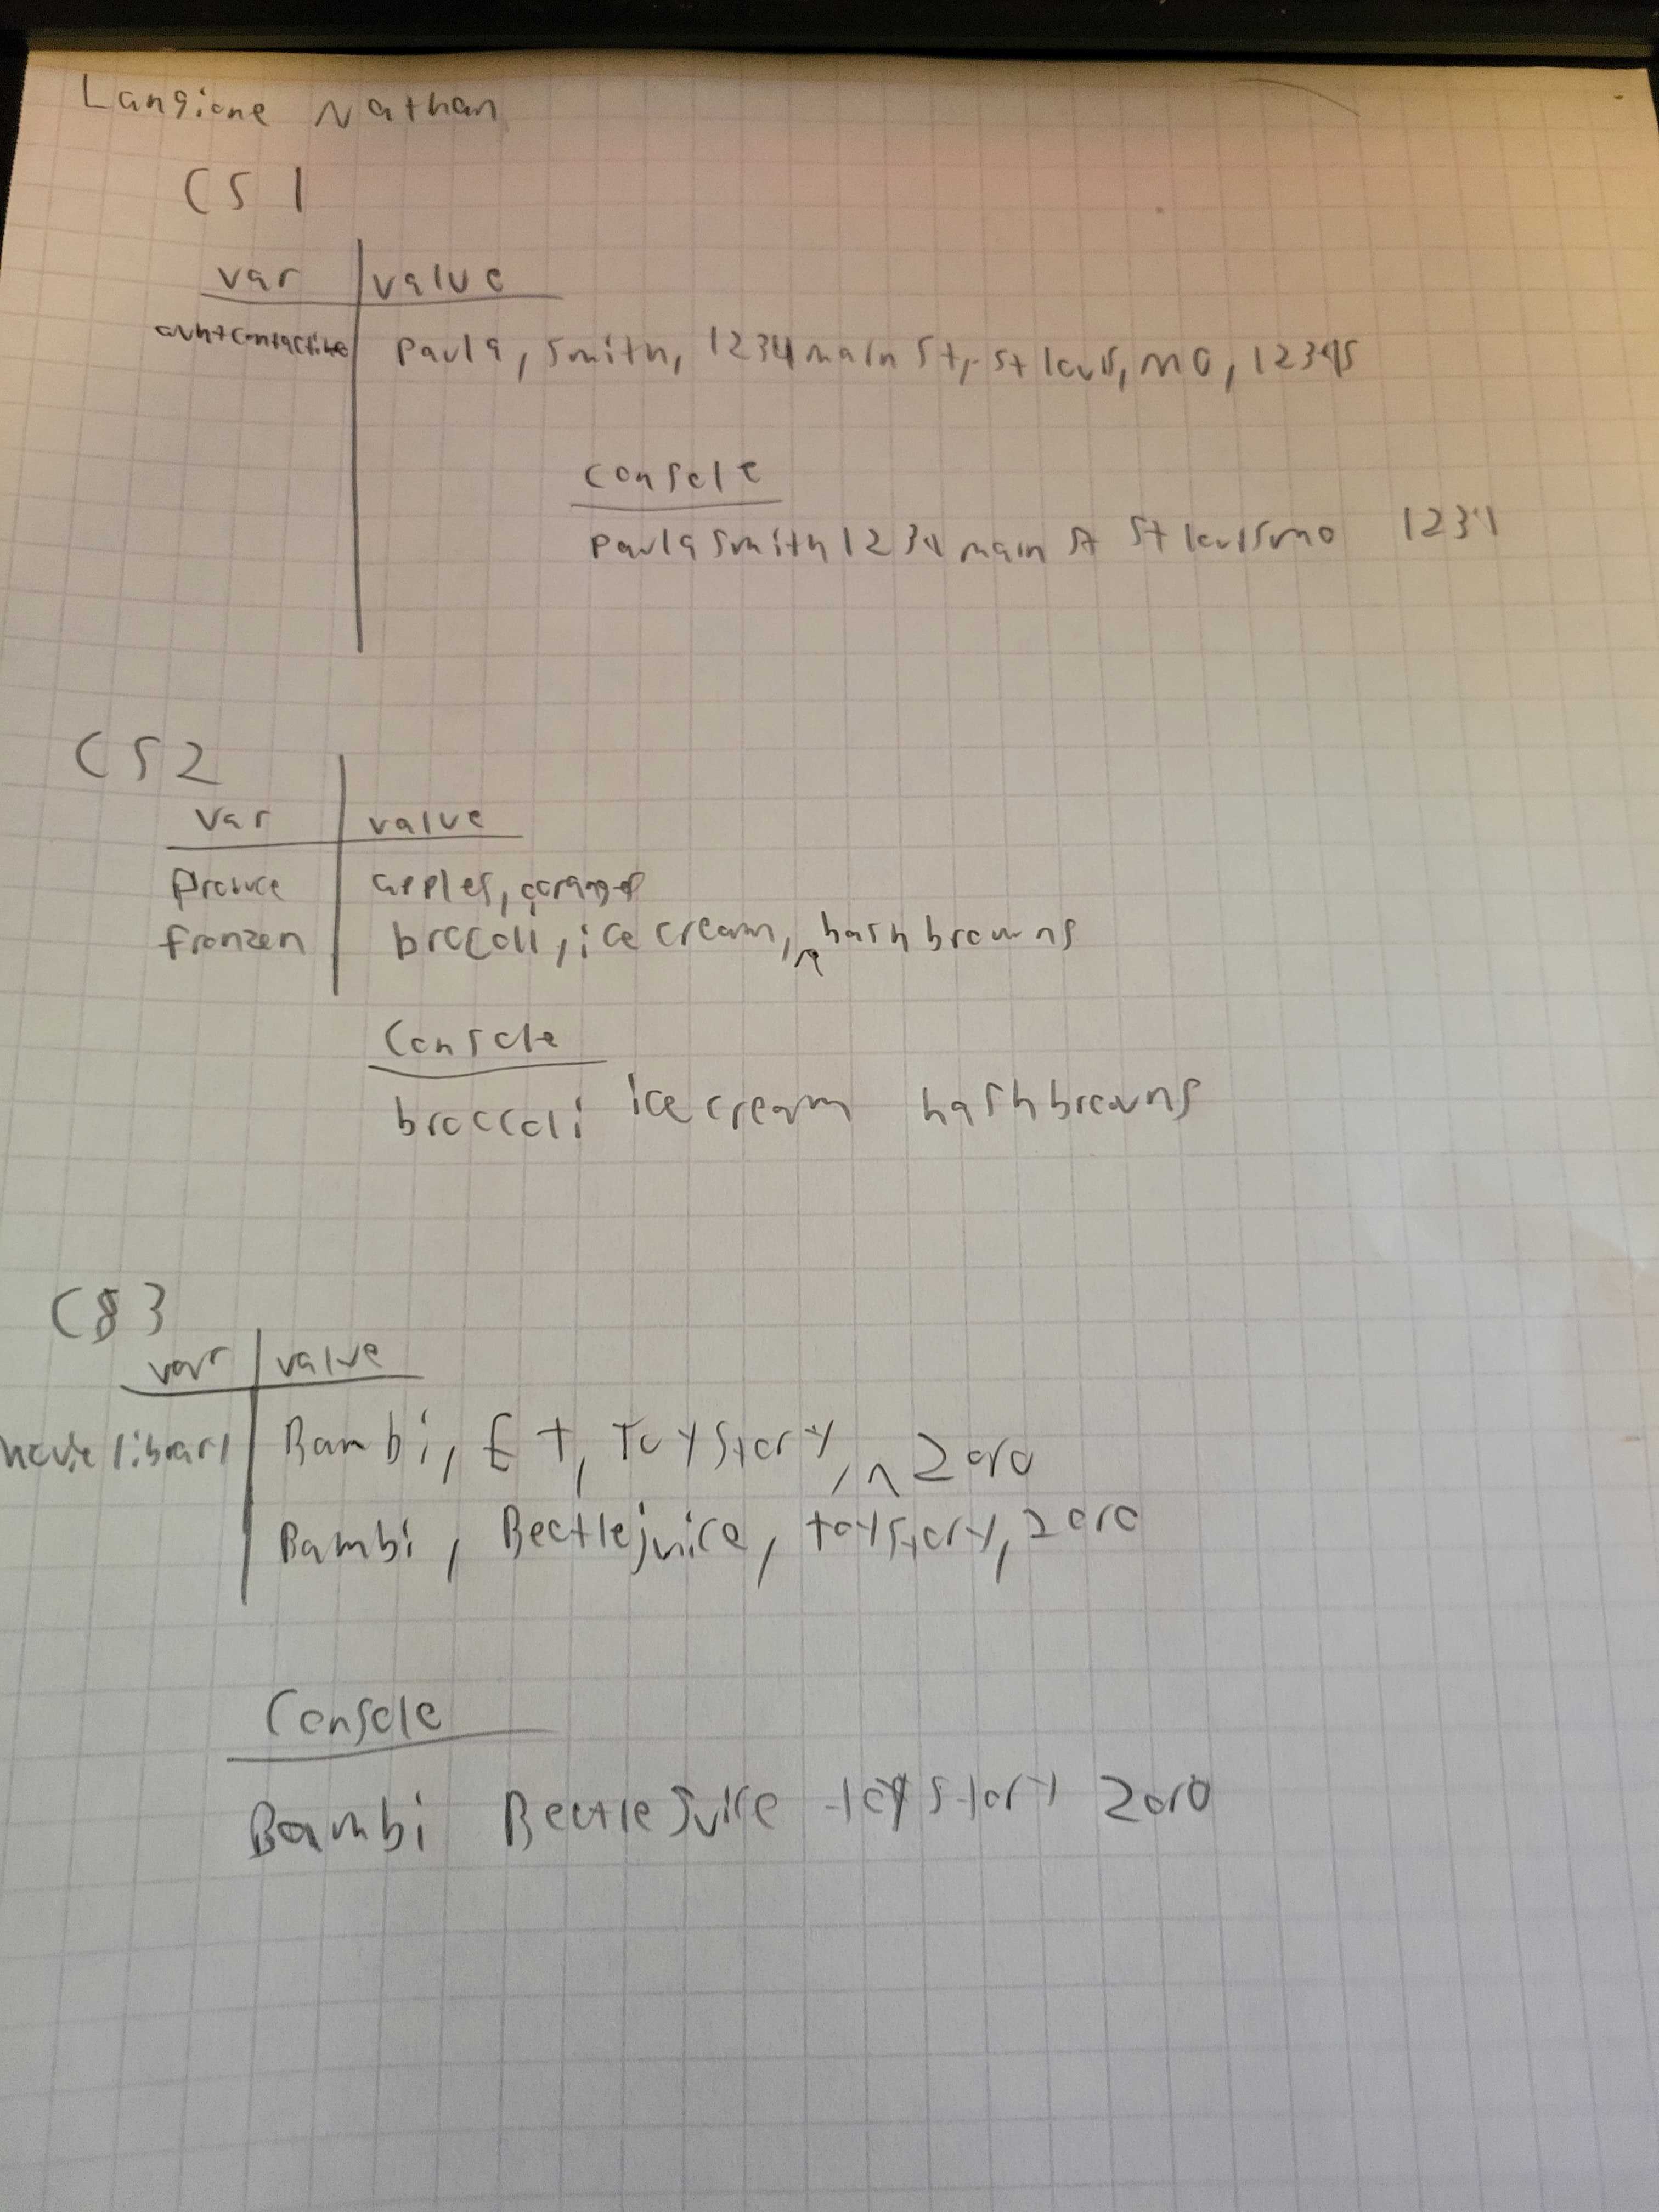 Langione Nathan
CS 1
var value
Paula, Smith, 1234 main St, St louis, MO, 12345
Console
Paula Smith 1234 main St St louis mo 1234
CS 2
var value
Produce apples, oranges
fronzen broccoli, ice cream, hash browns
Console
broccoli ice cream hash browns
CS 3
var value
movie library Bambi, ET, Toy Story, Zoro
Bambi, Beetlejuice, toy story, zoro
Console
Bambi Beetlejuice toy story Zoro